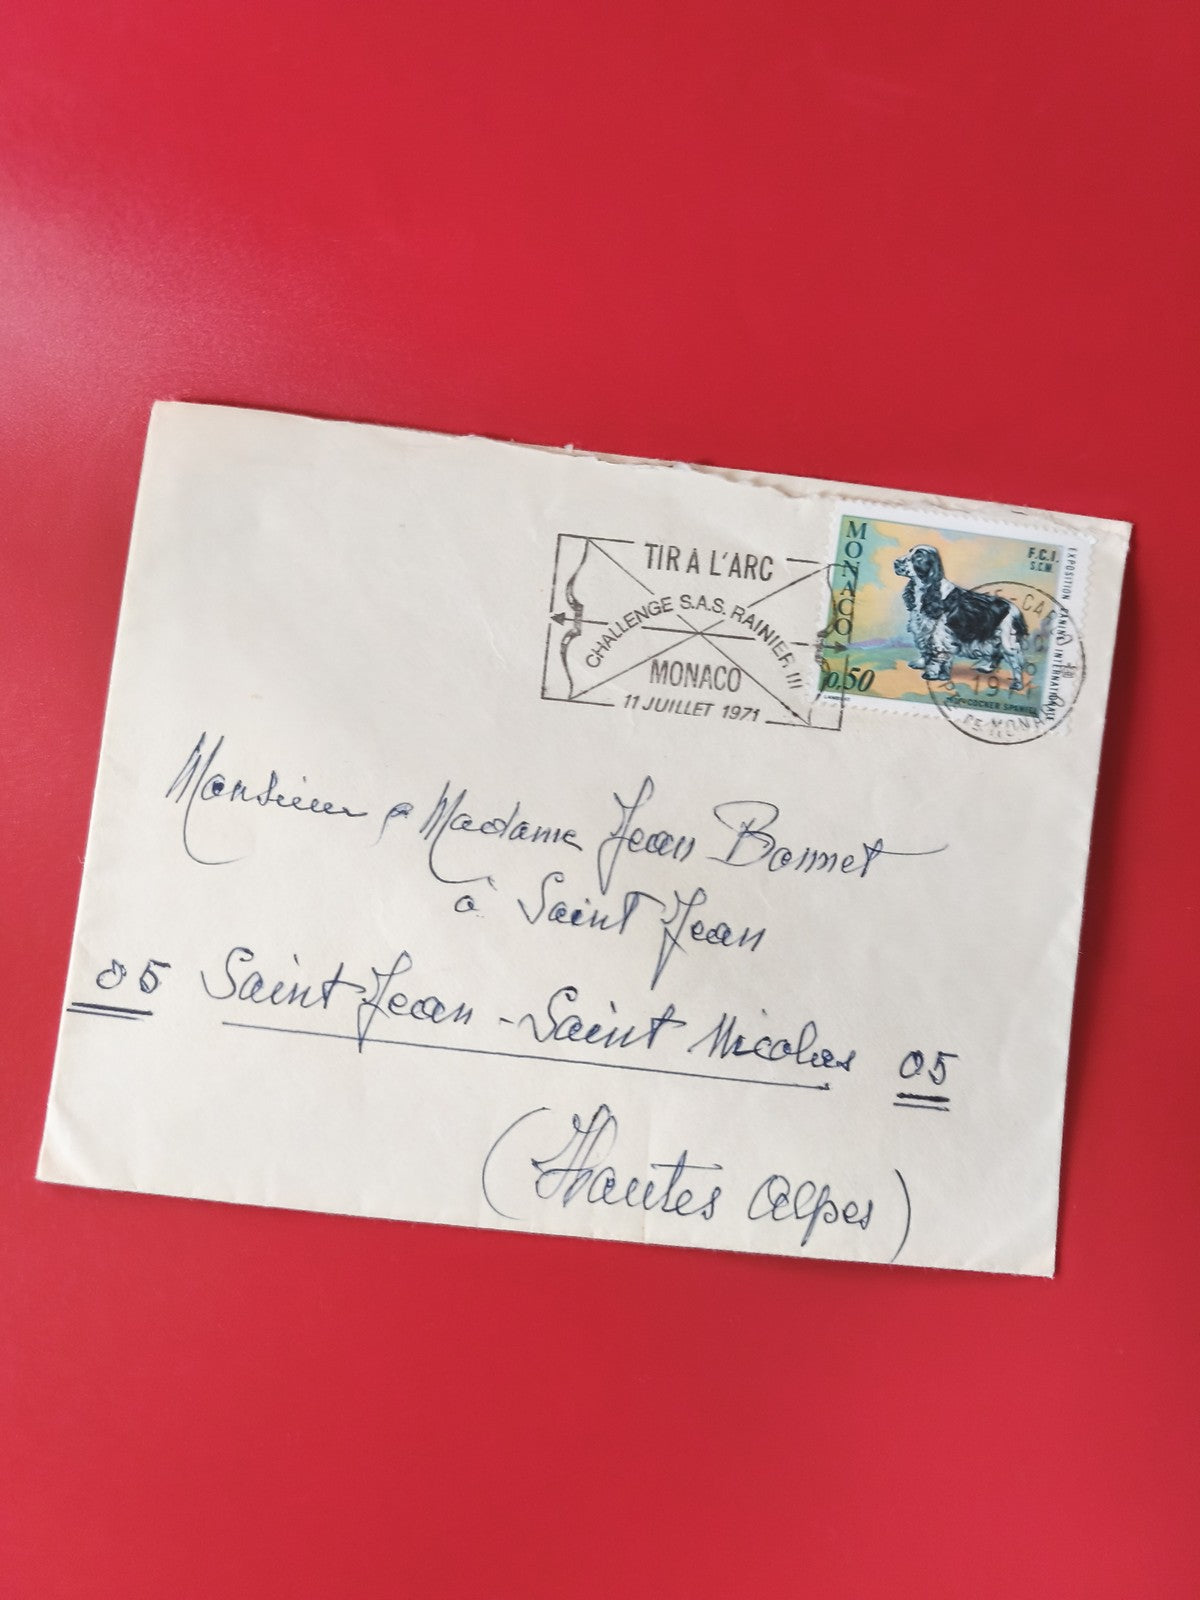 TIR A L'ARC
CHALLENGE S.A.S. RAINIER III
MONACO
11 JUILLET 1971
MONACO
F.C.I.
S.C.M.
EXPOSITION CANINE INTERNATIONALE
0,50
COCKER SPANIEL
1971
Monsieur e Madame Jean Bonnet
à Saint Jean
05 Saint Jean - Saint Nicolas 05
(Hautes Alpes)